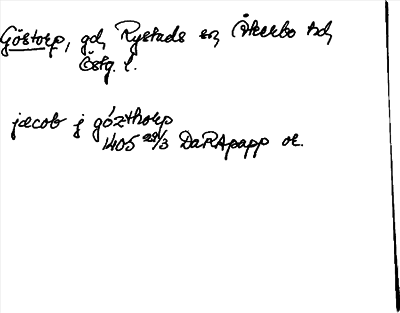 Göstorp, gd, Rystads sn, Åkerbo hd,
Östg. l.
jacob j gózthorp
1405 29/3 DaRApapp or.